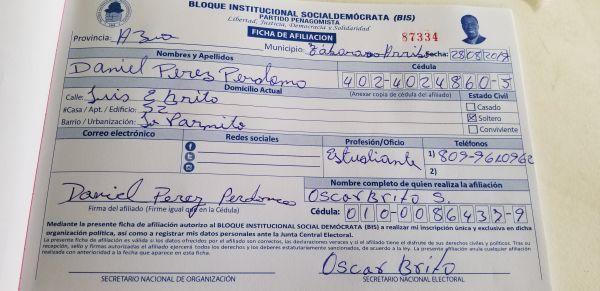 BLOQUE INSTITUCIONAL SOCIALDEMÓCRATA (BIS)
PARTIDO PENAGOMISTA
Libertad, Justicia, Democracia y Solidaridad
FICHA DE AFILIACION
87334
Provincia: Azua Municipio: Sábana Arriba Fecha: 28/08/2019
Nombres y Apellidos Cédula
Daniel Perez Perdomo 402-4024860-5
Domicilio Actual (Anexar copia de cédula del afiliado) Estado Civil
Calle: Luis E Brito Casado
#Casa / Apt. / Edificio: 32 Soltero
Barrio / Urbanización: Conviviente
Correo electrónico Redes sociales Profesión/Oficio Teléfonos
Estudiante 1) 809-9610962
2)
Nombre completo de quien realiza la afiliación
Daniel Perez Perdomo Oscar Brito S.
Firma del afiliado (Firme igual que en la Cédula) Cédula: 010-0086437-9
Mediante la presente ficha de afiliación autorizo al BLOQUE INSTITUCIONAL SOCIAL DEMÓCRATA (BIS) a realizar mi inscripción única y exclusiva en dicha
organización política, así como a registrar mis datos personales ante la Junta Central Electoral.
La presente ficha de afiliación es válida si los datos ofrecidos por el afiliado son correctos, las declaraciones veraces y si el afiliado tiene el disfrute de sus derechos civiles y políticos. Tras su
recepción, sello y firmas autorizadas el afiliado ejercerá todos los derechos y los deberes estatutariamente sancionados, de acuerdo a la ley. La presente afiliación anula cualquier afiliación
realizada con anterioridad a la fecha que aparece en esta ficha.
Oscar Brito
SECRETARIO NACIONAL DE ORGANIZACIÓN SECRETARIO NACIONAL ELECTORAL